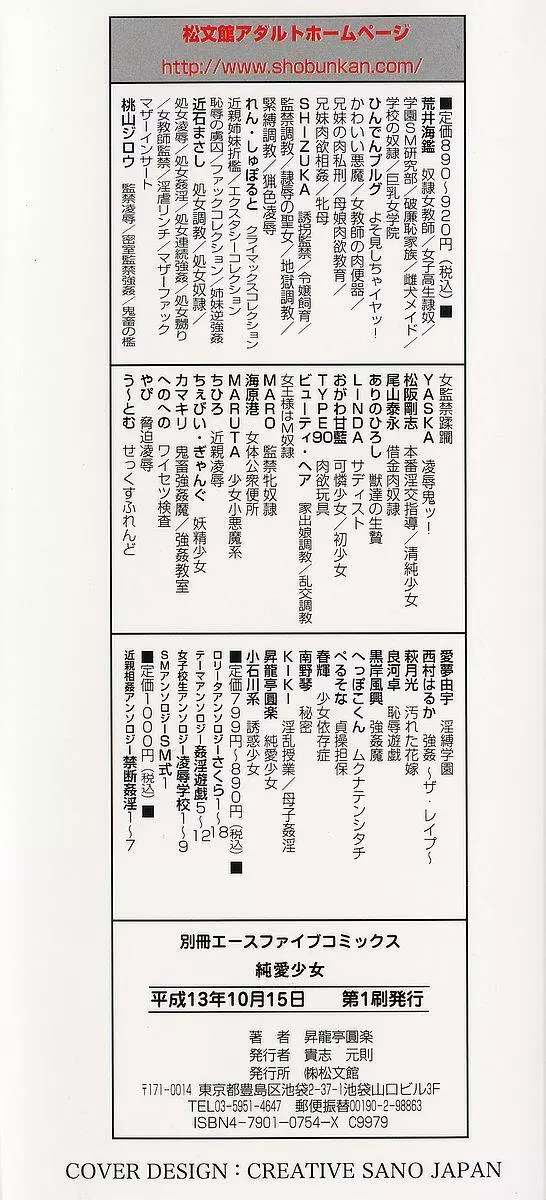 松文館アダルトホームページ
http://www.shobunkan.com/
■定価890〜920円（税込）■
荒井海鑑　奴隷女教師／女子高生隷奴／
学園SM研究部／破廉恥家族／雌犬メイド／
学校の奴隷／巨乳女学院
ひんでんブルグ　よそ見しちゃイヤッ！
かわいい悪魔／女教師の肉便器／
兄妹の肉私刑／母娘肉欲教育／
兄妹肉欲相姦／牝母
SHIZUKA　誘拐監禁／令嬢飼育／
監禁調教／隷辱の聖女／地獄調教／
緊縛調教／猟色凌辱
れん・しゅぼると　クライマックスコレクション
近親姉妹折檻／エクスタシーコレクション
恥辱の虜囚／ファックコレクション／姉妹逆強姦
近石まさし　処女調教／処女奴隷／
処女凌辱／処女姦淫／処女連続強姦／処女嬲り
／女教師監禁／淫虐リンチ／マザーファック
マザーインサート
桃山ジロウ　監禁凌辱／密室監禁強姦／鬼畜の檻
女監禁蹂躙
YASKA　凌辱鬼ッ！
松阪剛志　本番淫交指導／清純少女
尾山泰永　借金肉奴隷
ありのひろし　獣達の生贄
LINDA　サディスト
おがわ甘藍　可憐少女／初少女
TYPE90　肉欲玩具
ビューティ・ヘア　家出娘調教／乱交調教
女王様はM奴隷
MARO　監禁牝奴隷
海原港　女体公衆便所
MARUTA　少女小悪魔系
ちひろ　近親凌辱
ちぇびい・ぎゃんぐ　妖精少女
カマキリ　鬼畜強姦魔／強姦教室
へのへの　ワイセツ検査
やぴ　脅迫凌辱
う〜とむ　せっくすふれんど
愛夢由宇　淫縛学園
西村はるか　強姦〜ザ・レイプ〜
萩月光　汚れた花嫁
良河卓　恥辱遊戯
黒岸風興　強姦魔
へっぽこくん　ムクナテンシタチ
ぺるそな　貞操担保
春輝　少女依存症
南野琴　秘密
KIKI　淫乱授業／母子姦淫
昇龍亭圓楽　純愛少女
小石川系　誘惑少女
■定価799円〜890円（税込）■
ロリータアンソロジーさくら1〜18
テーマアンソロジー姦淫遊戯5〜12
女子校生アンソロジー凌辱学校1〜9
SMアンソロジーSM式1
■定価1000円（税込）■
近親相姦アンソロジー禁断姦淫1〜7
別冊エースファイブコミックス
純愛少女
平成13年10月15日　第1刷発行
著　者　昇龍亭圓楽
発行者　貴志　元則
発行所　㈱松文館
〒171-0014 東京都豊島区池袋2-37-1池袋山口ビル3F
TEL03-5951-4647　郵便振替00190-2-98863
ISBN4-7901-0754-X C9979
COVER DESIGN：CREATIVE SANO JAPAN